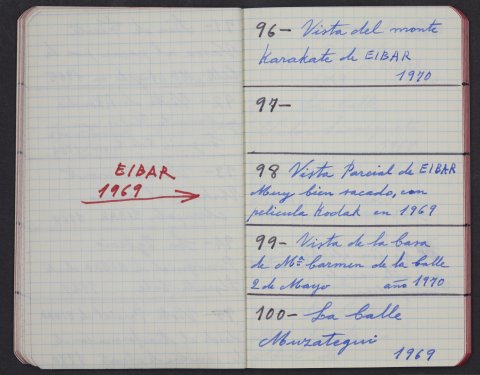 EIBAR
1969
96- Vista del monte
Karakate de EIBAR
1970
97-
98 Vista Parcial de EIBAR
Muy bien sacado, con
pelicula Kodak en 1969
99- Vista de la Casa
de Mª Carmen de la Calle
2 de Mayo año 1970
100- La Calle
Muzategui
1969